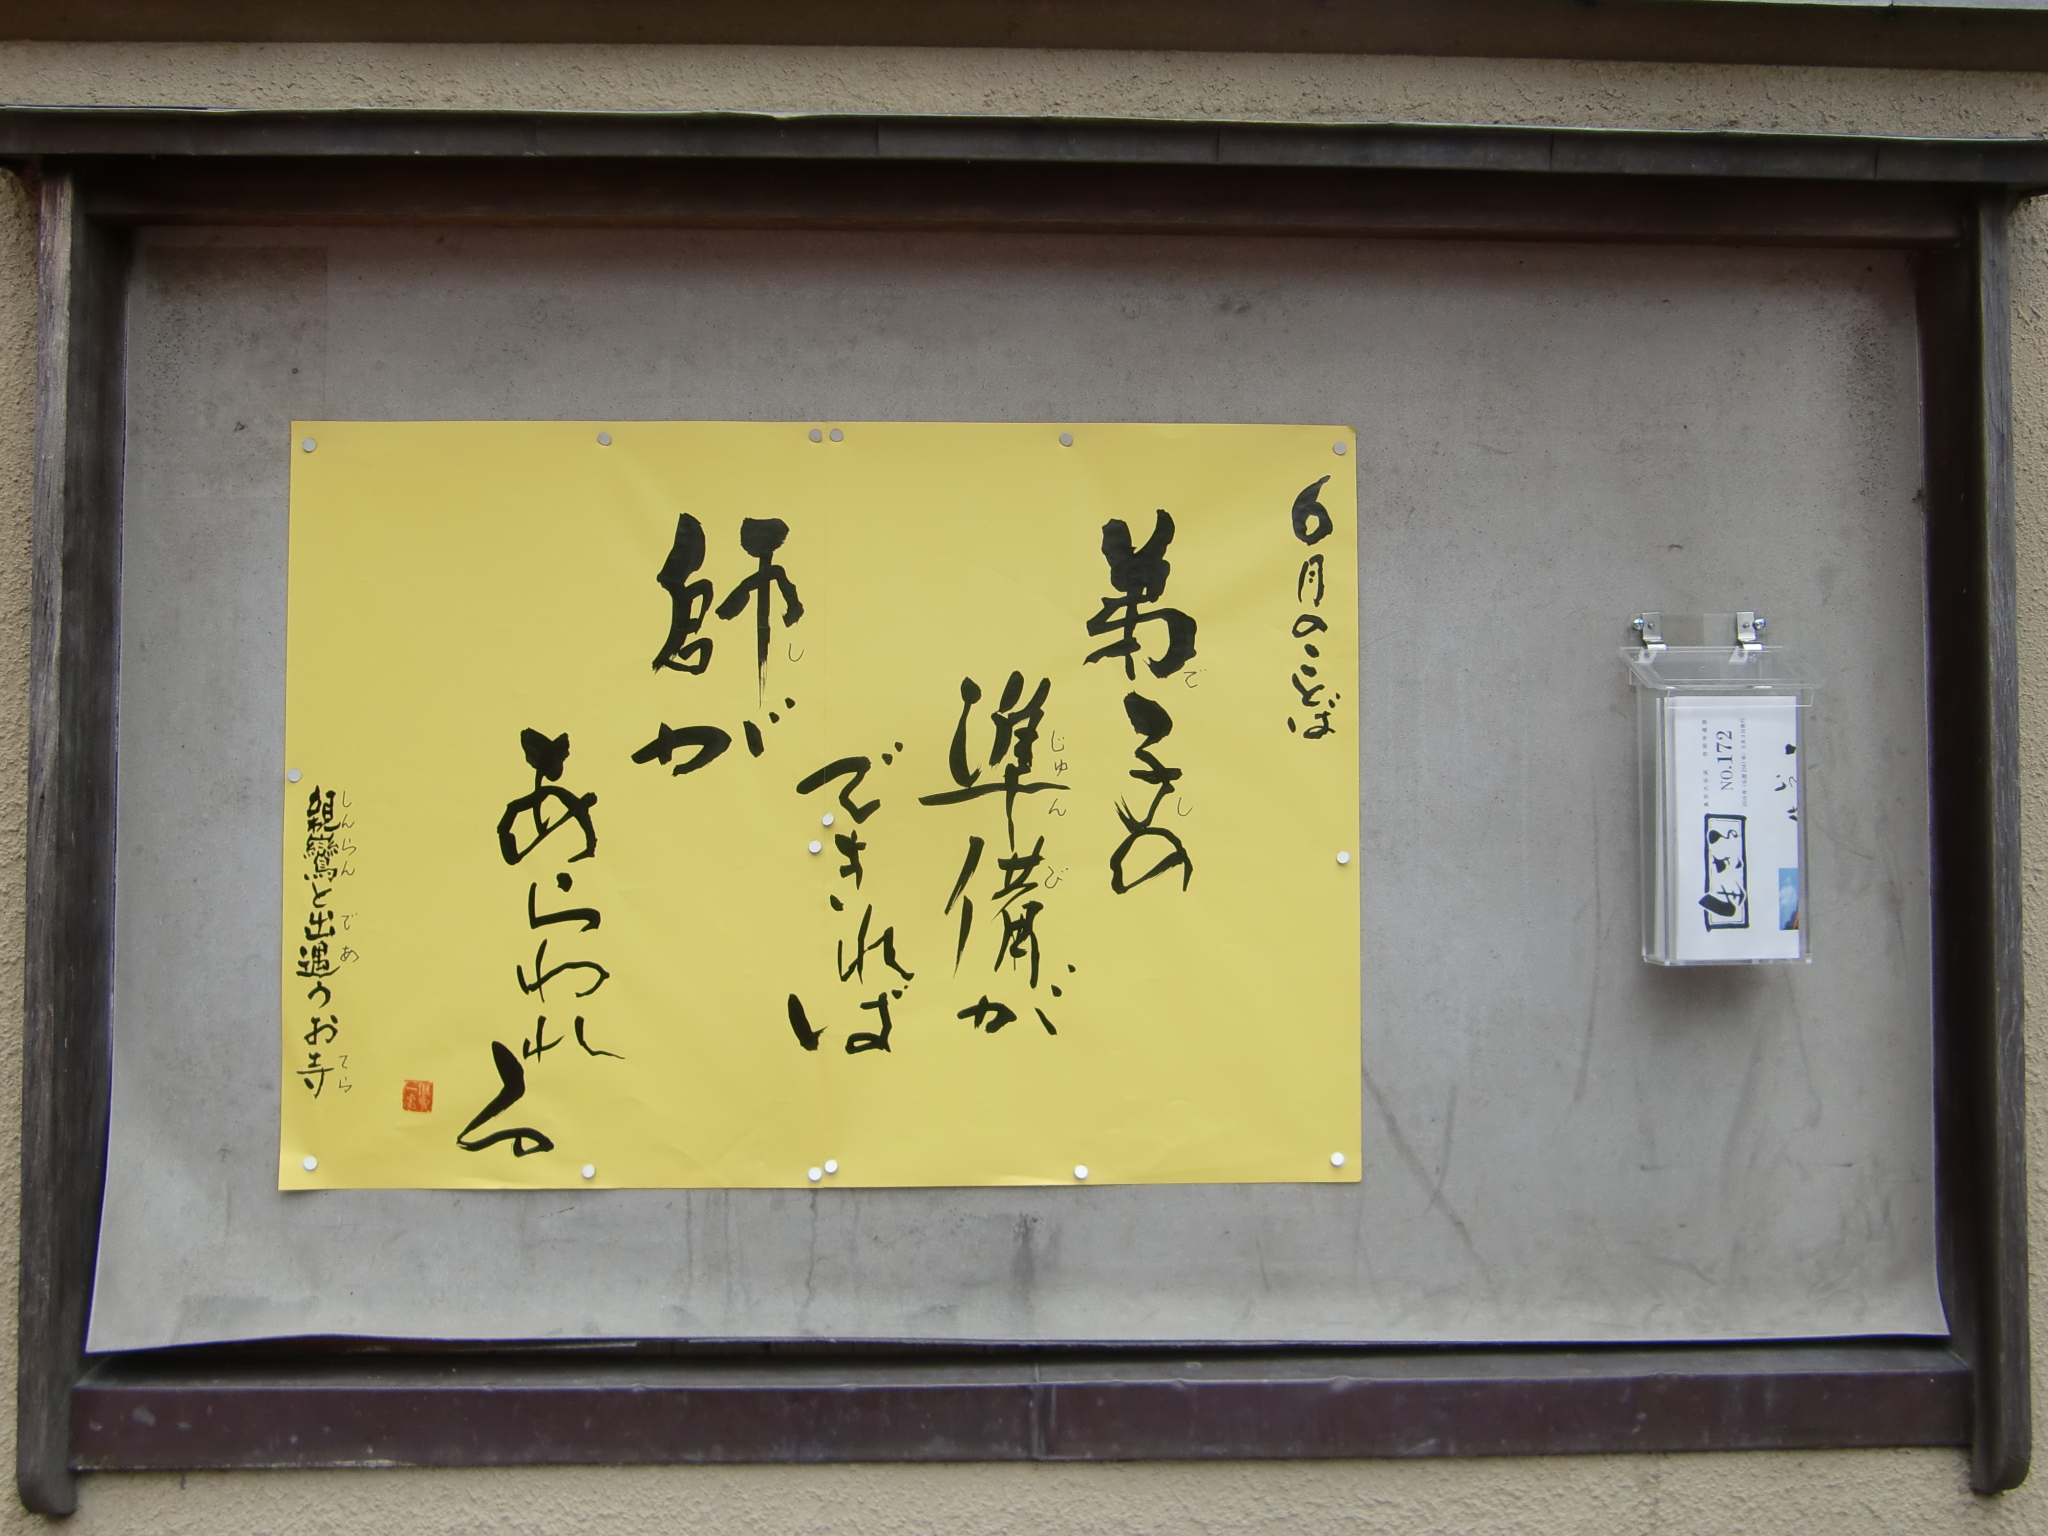 6月のことば
弟子の
でし
準備が
じゅんび
できれば
師が
し
あらわれる
親鸞と出遇うお寺
しんらん であ てら
NO.172
生きる